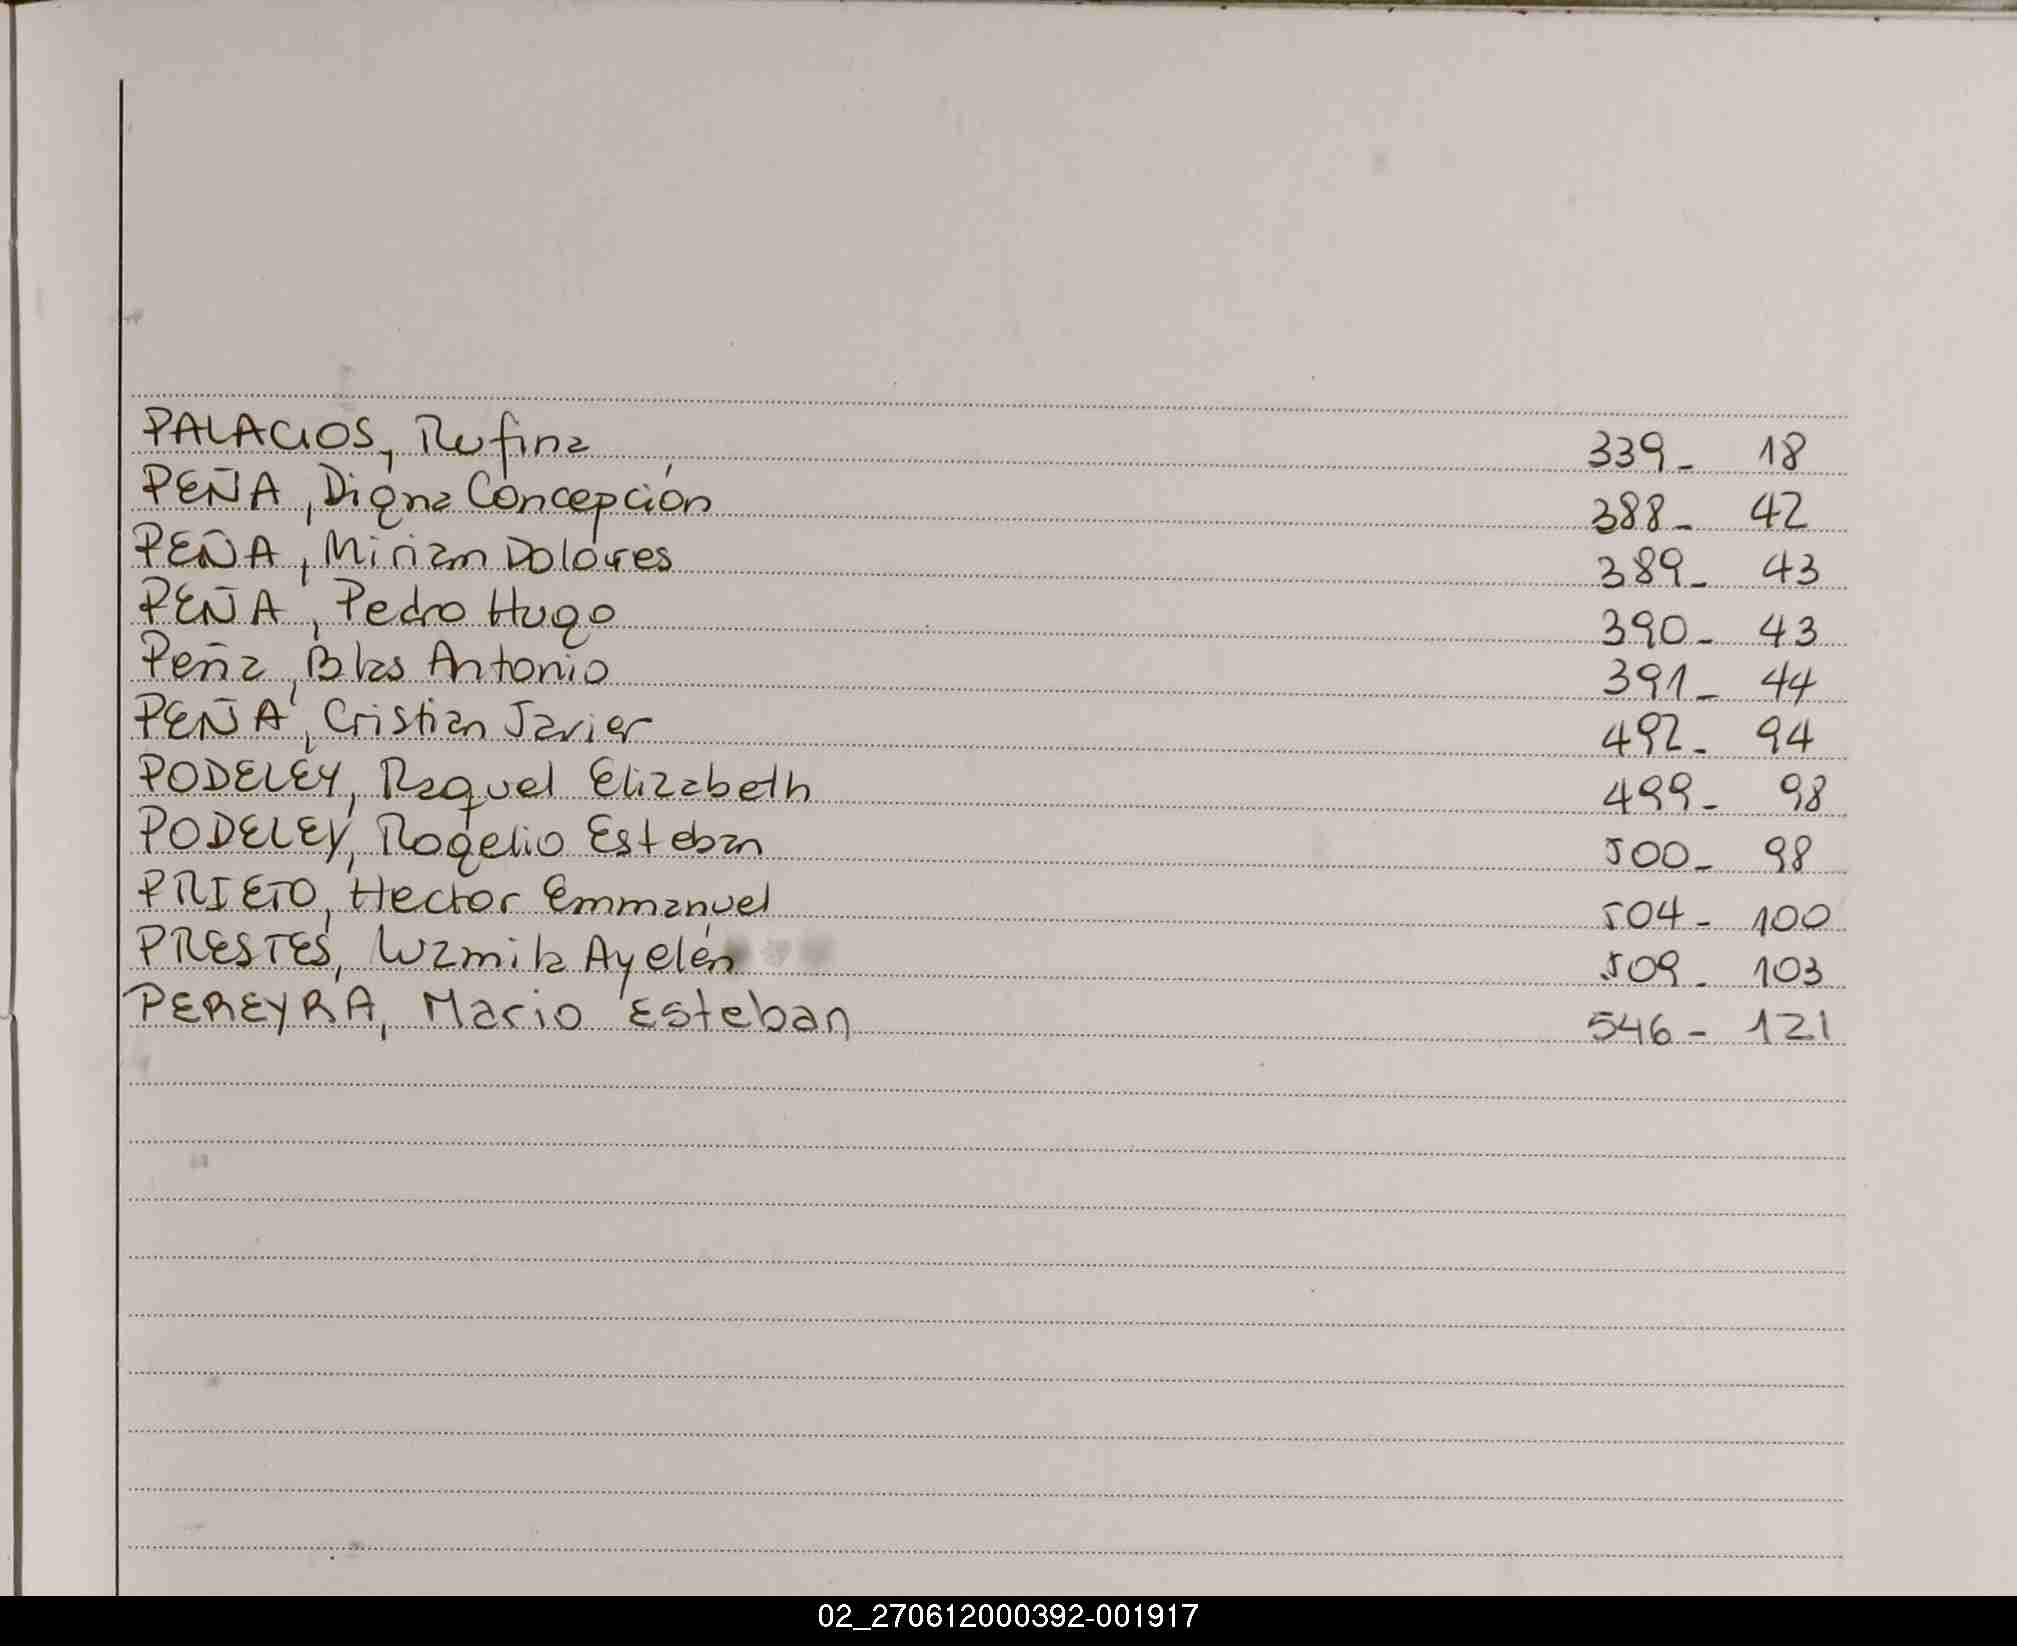 PALACIOS, Rufina 339- 18
PEÑA, Digna Concepción 388- 42
PEÑA, Mirian Dolores 389- 43
PEÑA, Pedro Hugo 390- 43
Peña, Blas Antonio 391- 44
PEÑA, Cristian Javier 492- 94
PODELEY, Raquel Elizabeth 499- 98
PODELEY, Rogelio Esteban 500- 98
PRIETO, Hector Emmanuel 504- 100
PRESTES, Luzmila Ayelén 509- 103
PEREYRA, Mario Esteban 546- 121
02_270612000392-001917